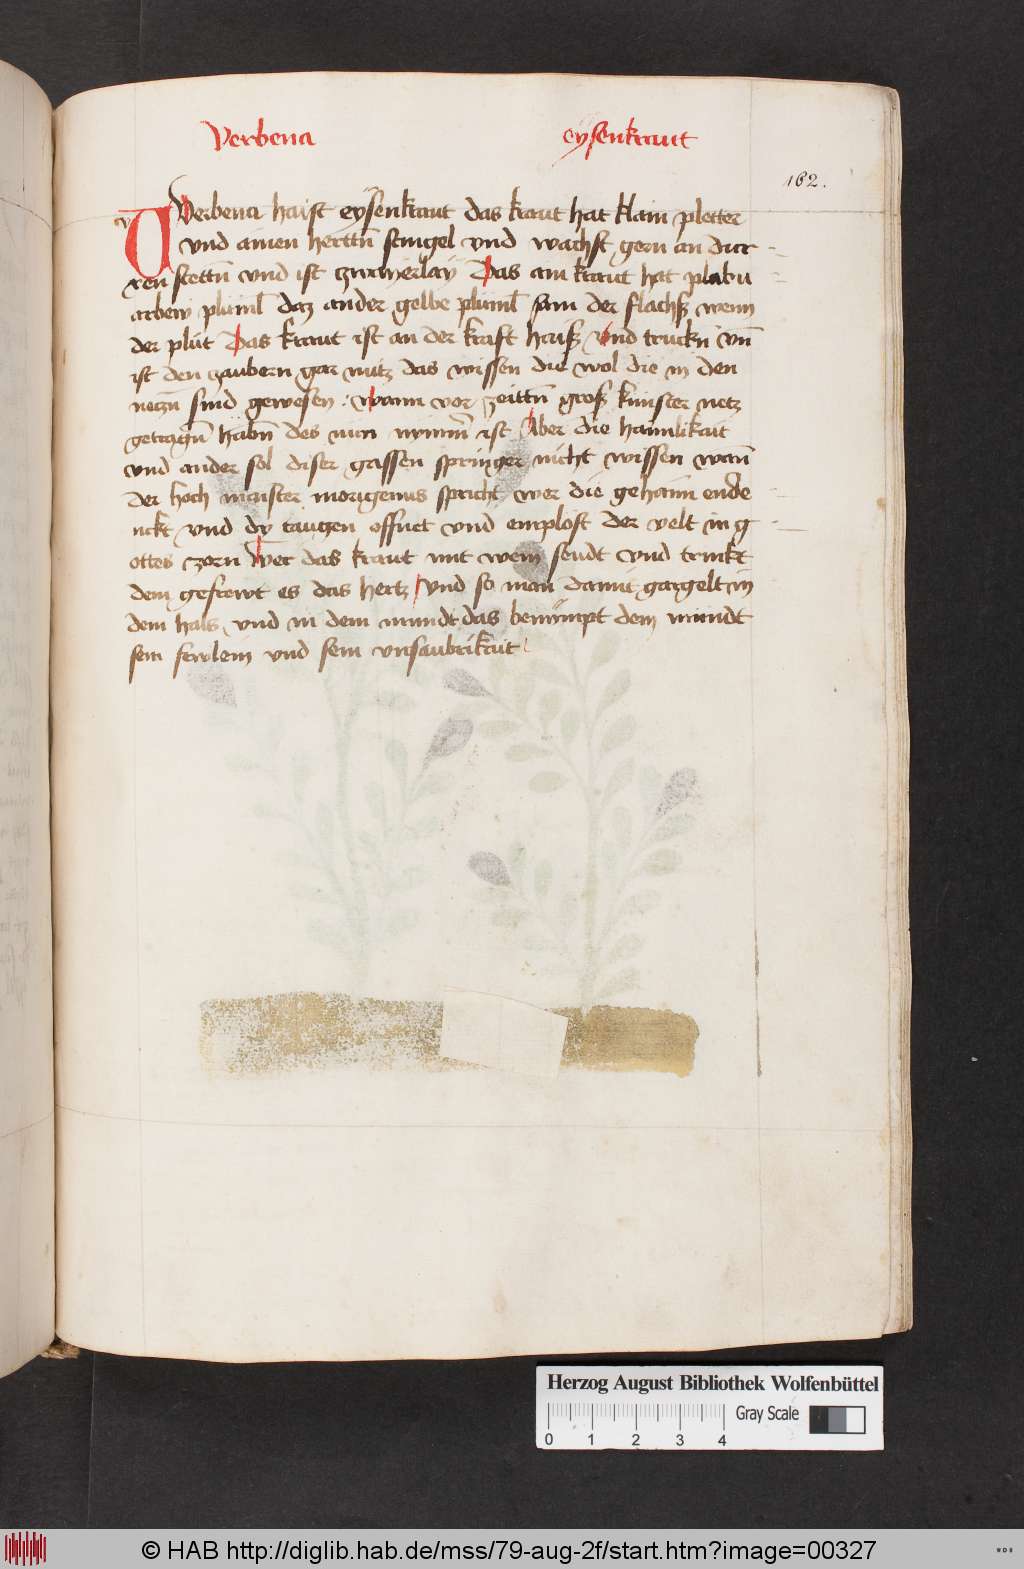 Verbena eysenkraut
162.
Verbena haist eysenkraut das kraut hat klain pletter
vnd ainen herttn stingel vnd wachst gern an dur
ren stettn vnd ist zwayerlay Das ain kraut hat plabu
arbew plüml daz ander gelbe plüml sam der flachß wenn
der plüt Das kraut ist an der kraft haiß vnd truckn vn
ist den zaubern gar nutz das wissen die wol die in den
netzn sind gewesen : wann vor zeittn groß kunster netz
getragn habn des nun nymm ist Aber die haimlikait
vnd ander sol diser gassen springer nicht wissen wan
der hoch maister morigenus spricht wer die gehaim ende
nckt vnd dy taugen offnet vnd emplost der velt in g
ottes zorn Wer das kraut mit wein seudt vnd trinkt
dem gefrewt es das hertz vnd so man damit gargelt in
dem hals vnd in dem mundt das benympt dem mundt
sein fewlein vnd sein vnsaubrikait
Herzog August Bibliothek Wolfenbüttel
Gray Scale
0 1 2 3 4
© HAB http://diglib.hab.de/mss/79-aug-2f/start.htm?image=00327